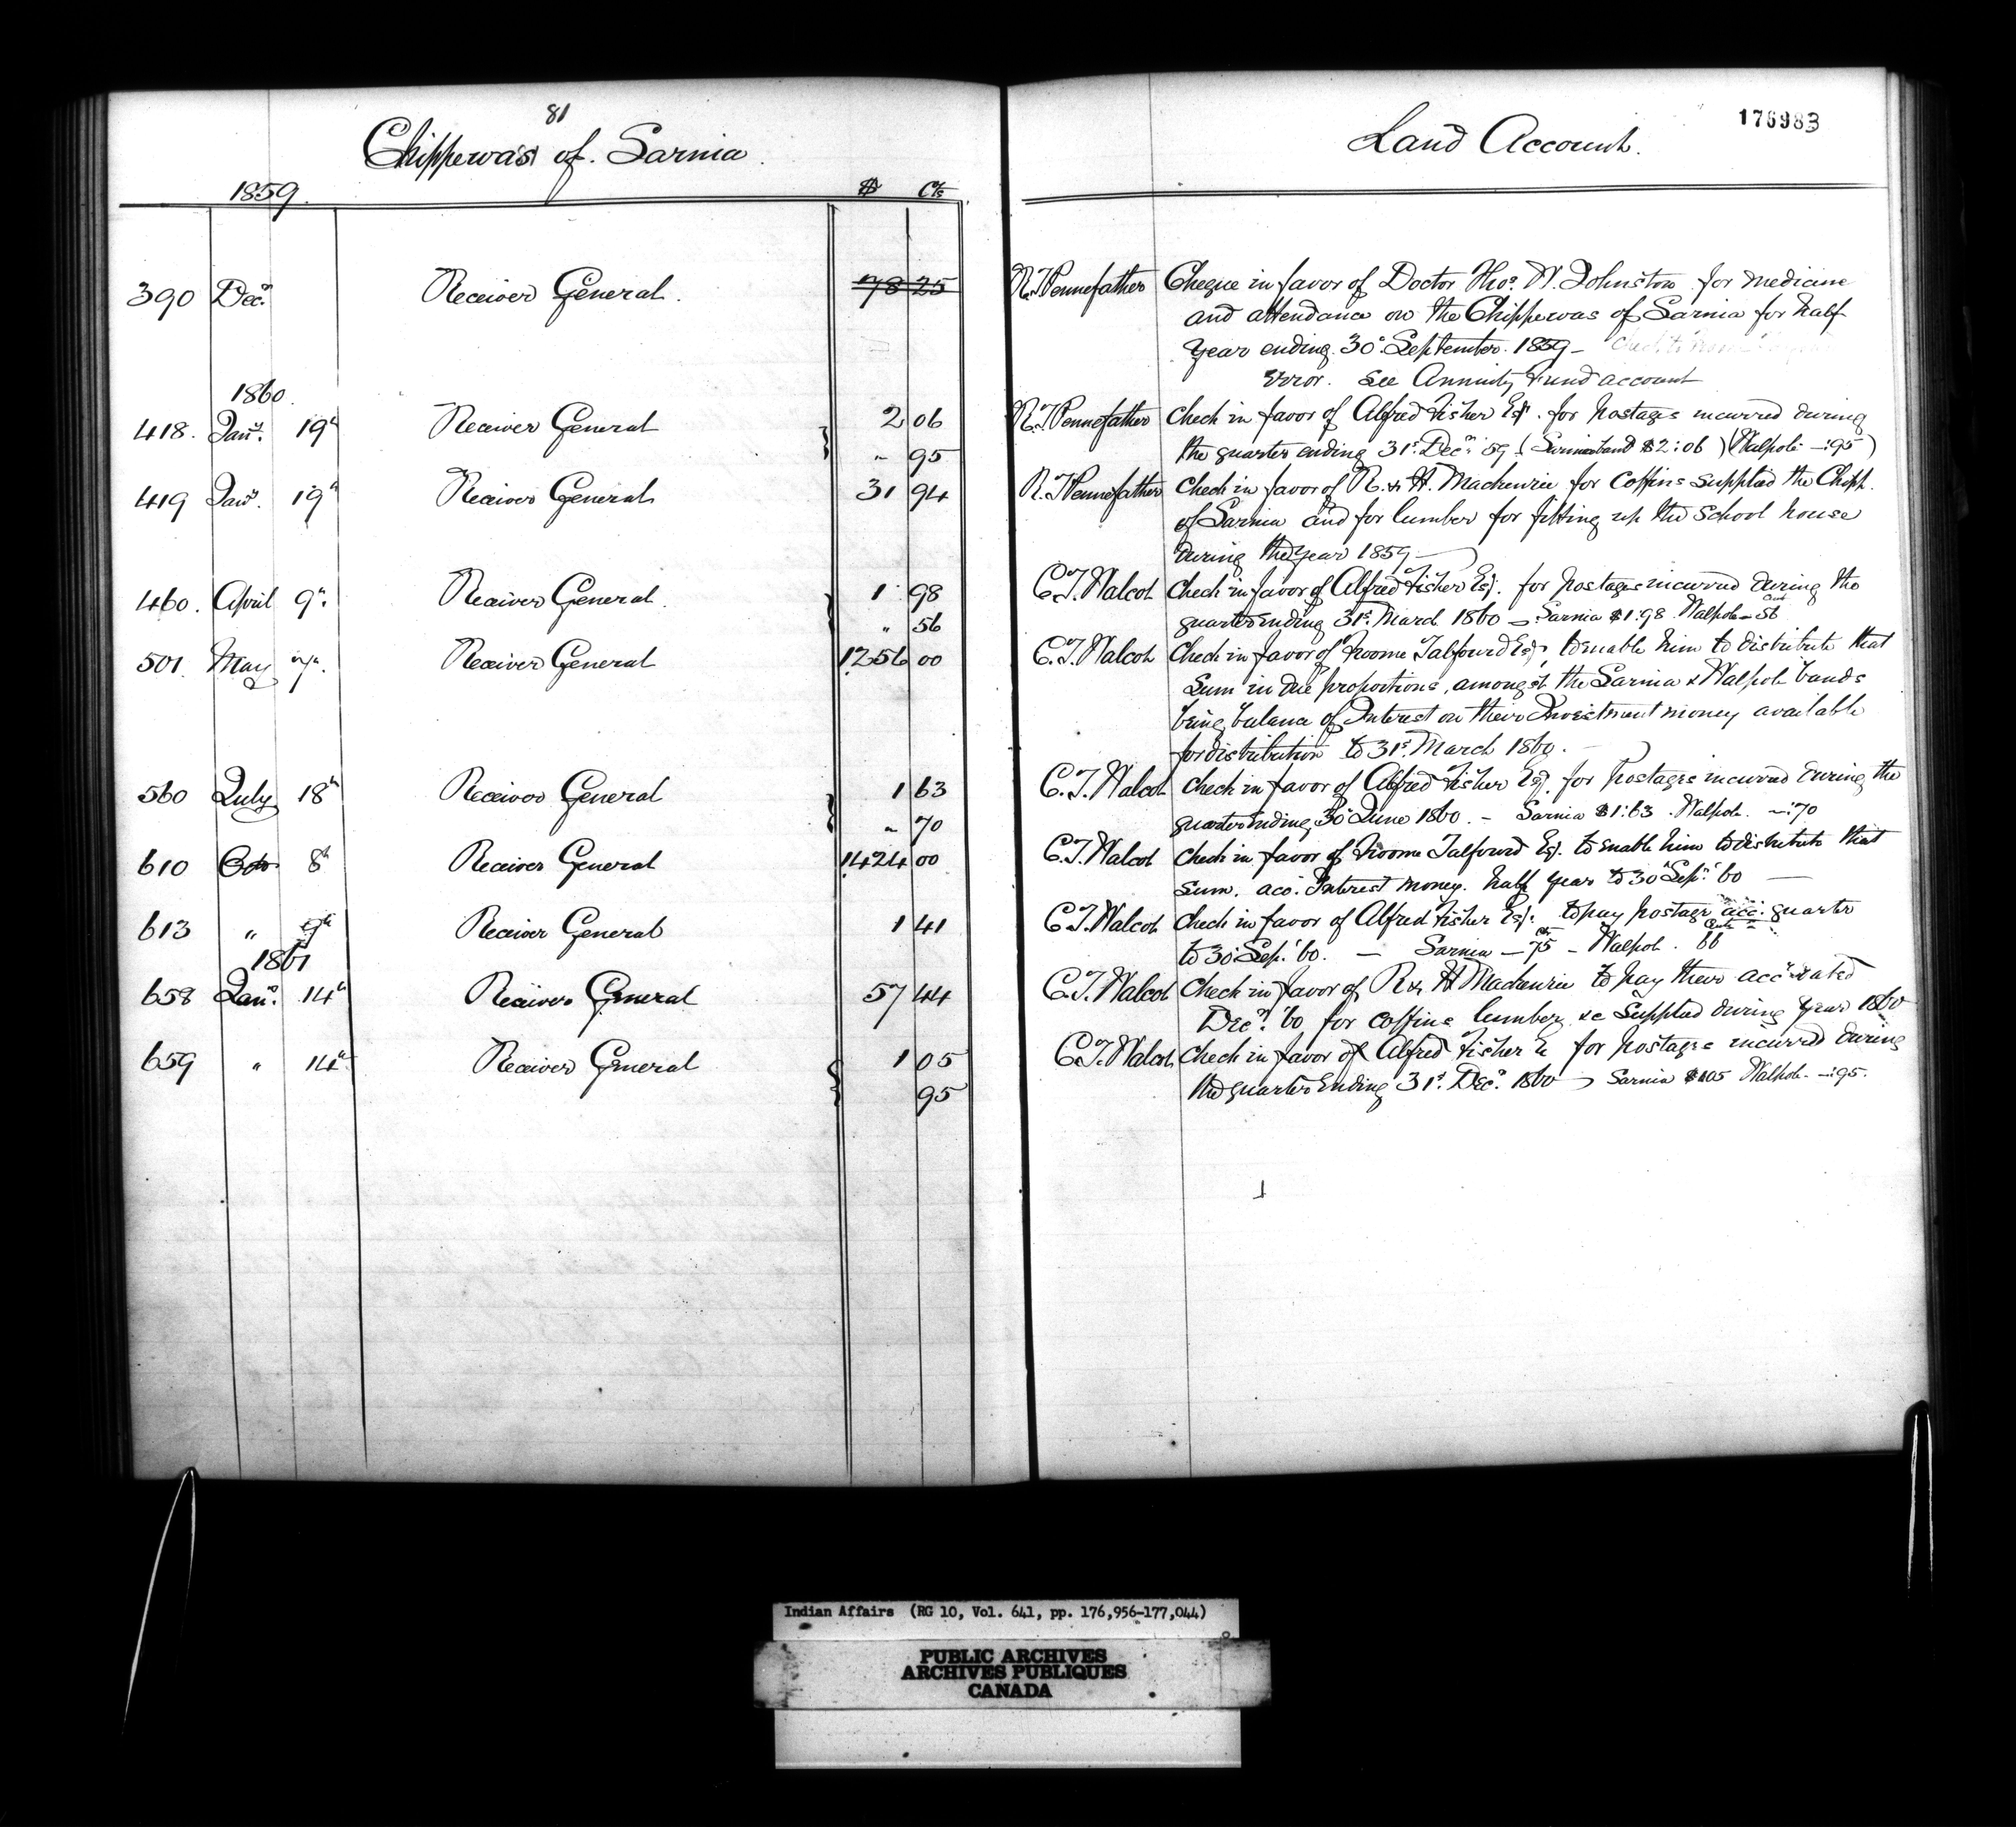 81
Chippewa's of Sarnia.
Land Account.
176983
1859.
$ Cts
390 Decr Receiver General. 78 25 R.T. Pennefather Cheque in favor of Doctor Thos. W. Johnston for medicine
and attendance on the Chippewas of Sarnia for half
year ending 30th September 1859 –
Error. See Annuity Fund account
1860.
418. Jany. 19th Receiver General 2 06 R.T. Pennefather Check in favor of Alfred Fisher Esq. for postages incurred during
" 95 the quarter ending 31st Decr 59 (Sarnia band $2:06) (Walpole –:95)
419 Jany. 19th Receiver General 31 94 R.T. Pennefather Check in favor of R. & H. Mackenzie for Coffins supplied the Chipp.
of Sarnia and for lumber for fitting up the School house
during the year 1859 –
460. April 9th. Receiver General. 1 98 C.T. Walcot Check in favor of Alfred Fisher Esq. for postages incurred during the
" 56 quarter ending 31st March 1860 – Sarnia $1:98 Walpole – 56
501. May 7th. Receiver General 1256 00 C.T. Walcot Check in favor of Froome Talfourd Esq. to enable him to distribute that
Sum in due proportions, amongst the Sarnia & Walpole bands
being balance of Interest on their Investment money available
for distribution to 31st March 1860. –
560 July 18th Receiver General 1 63 C.T. Walcot Check in favor of Alfred Fisher Esq. for Postages incurred during the
" 70 quarter ending 30th June 1860. – Sarnia $1:63. Walpole. –:70
610 Octr 8th Receiver General 1424 00 C.T. Walcot Check in favor of Froome Talfourd Esq. to enable him to distribute that
Sum. acc. Interest money. half year to 30th Sepr. 60 –
613 " Receiver General 1 41 C.T. Walcot Check in favor of Alfred Fisher Esq. to pay postage acc. quarter
to 30th Sepr. 60. – Sarnia – 75 – Walpole. 66
1861
658 Jany. 14th Receiver General 57 44 C.T. Walcot Check in favor of R & H Mackenzie to pay their acct dated
Decr. 60 for coffins lumber &c Supplied during year 1860
659 " 14th Receiver General 1 05 C.T. Walcot Check in favor of Alfred Fisher E for postages incurred during
95 the quarter Ending 31st Decr. 1860 – Sarnia $1.05 Walpole –:95.
Indian Affairs (RG 10, Vol. 641, pp. 176,956-177,044)
PUBLIC ARCHIVES
ARCHIVES PUBLIQUES
CANADA